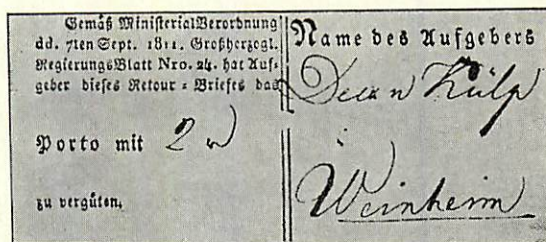 Gemäß MinisterialVerordnung
dd. 7ten Sept. 1811. Großherzogl.
RegierungsBlatt Nro. 24. hat Auf-
geber dieses Retour-Briefes das
Porto mit 2
zu vergüten.
Name des Aufgebers
Weinheim